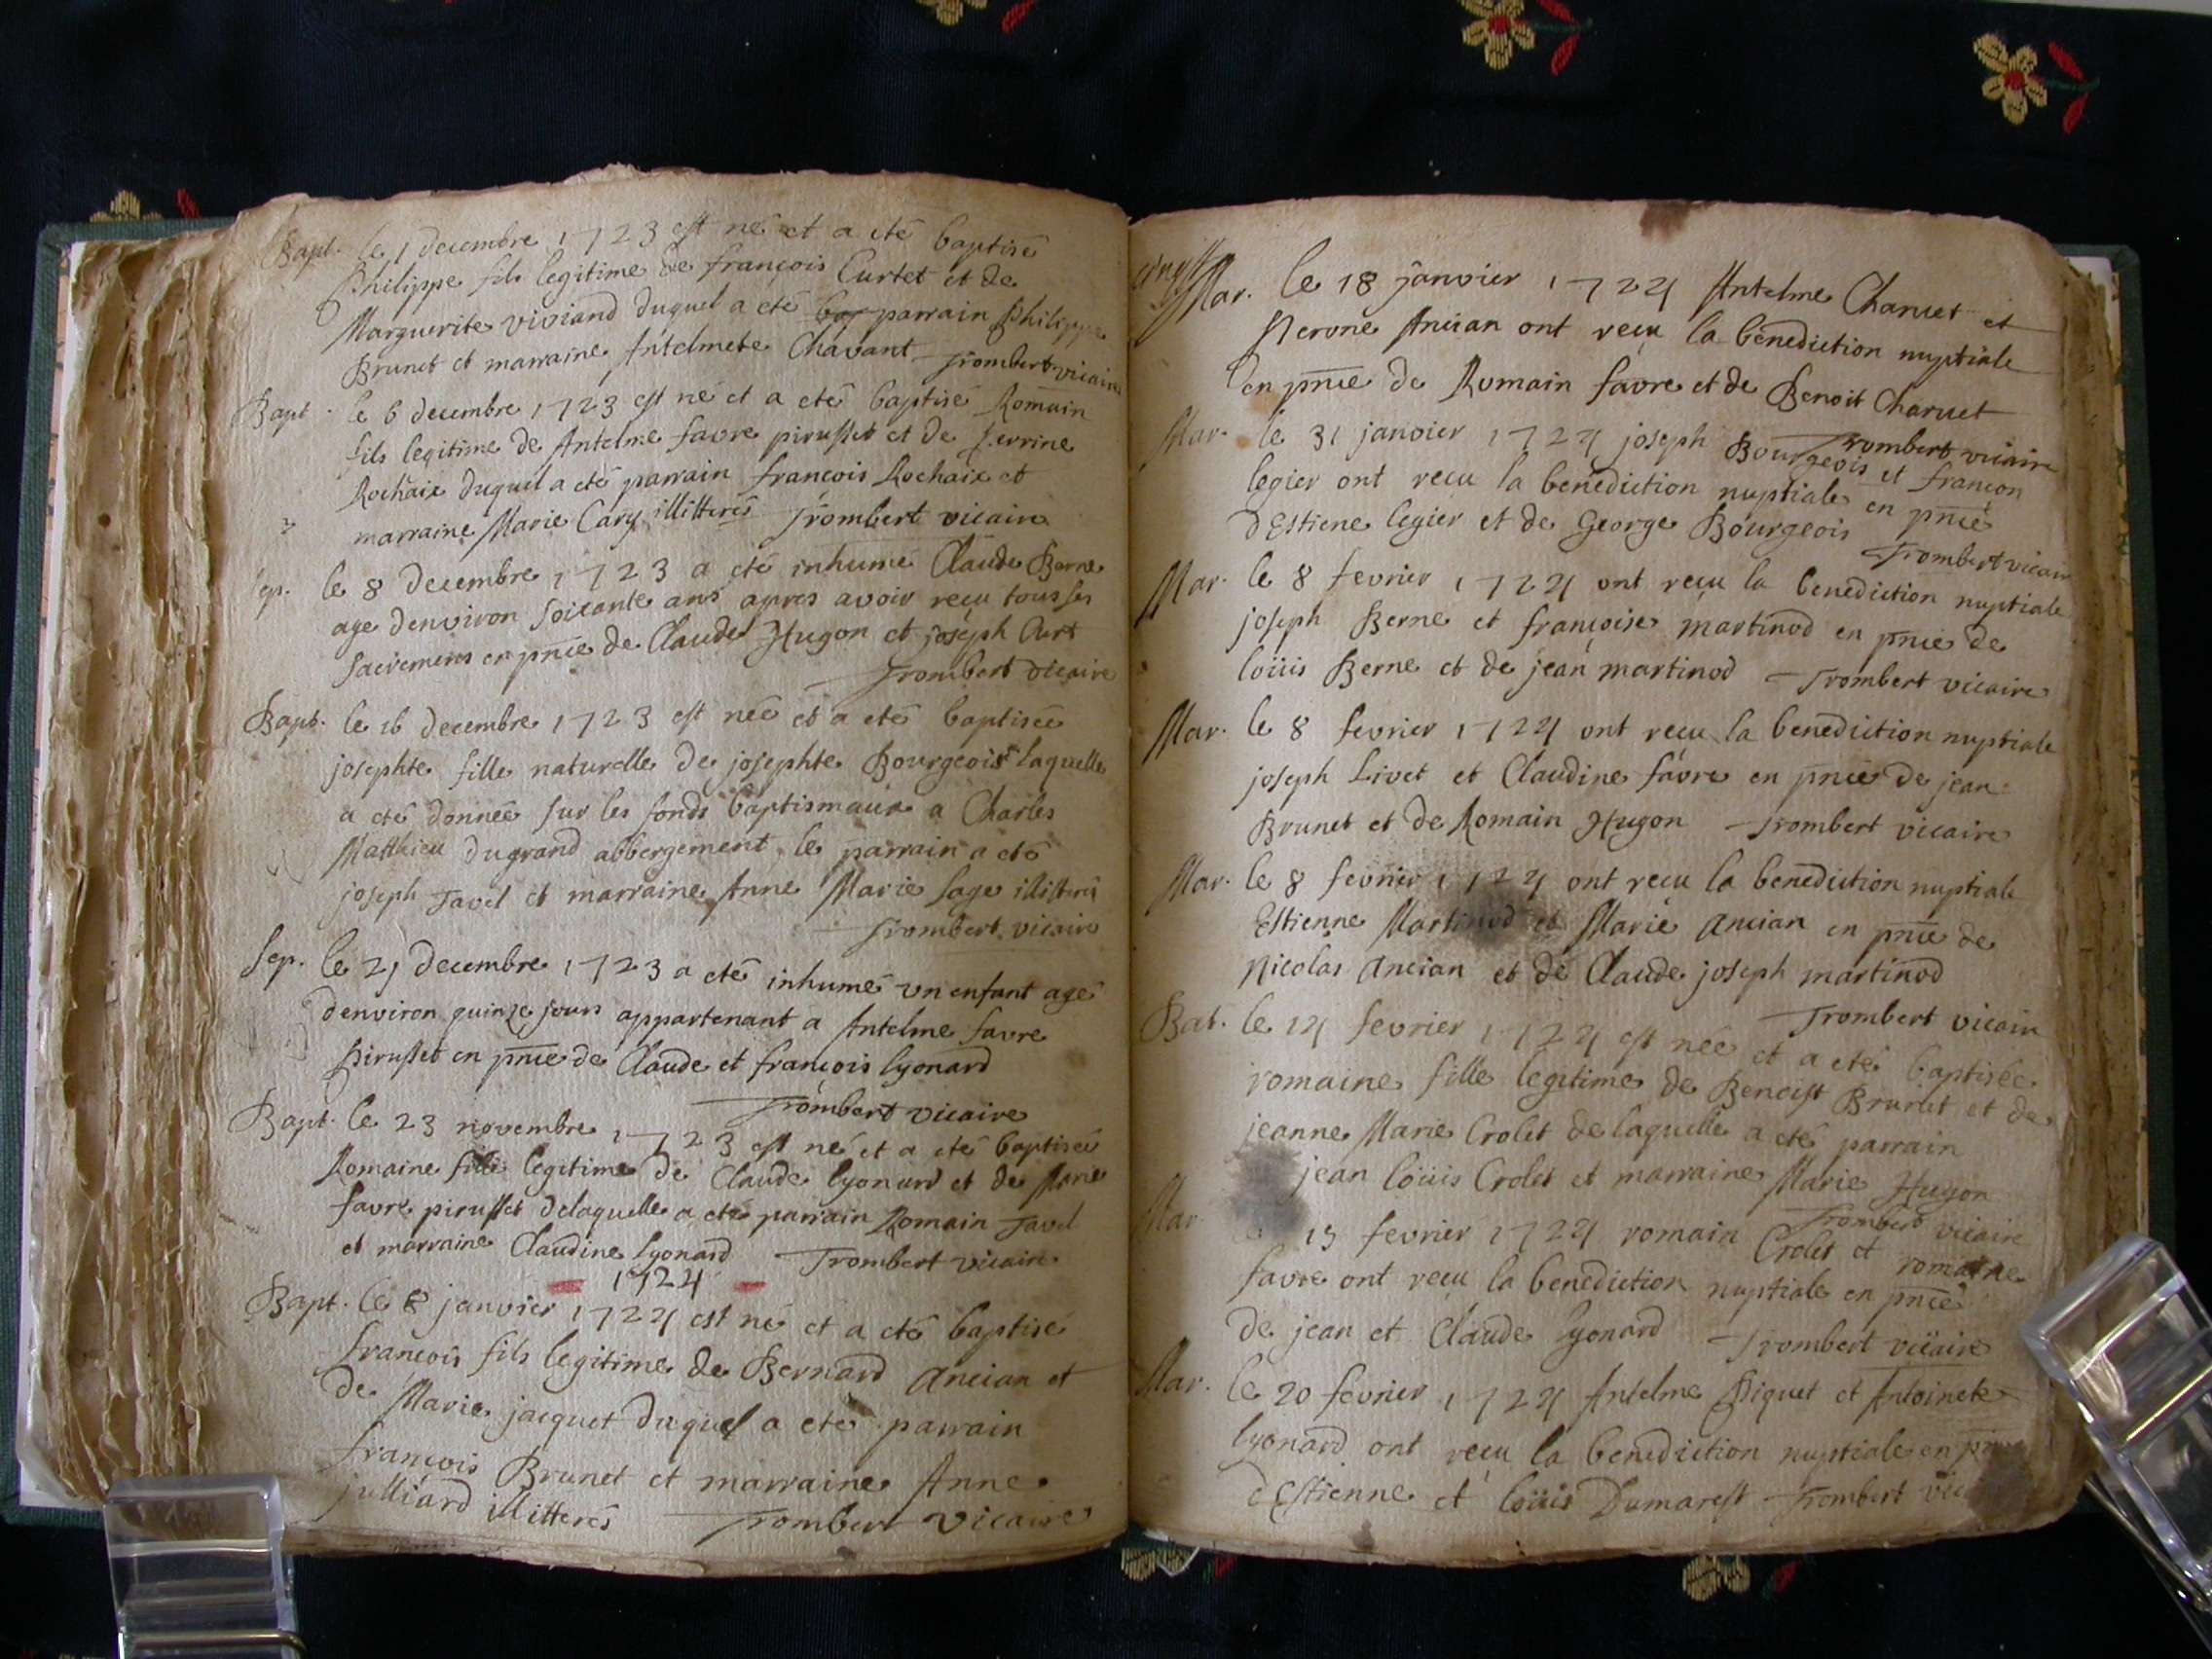 Bapt. le 1 decembre 1723 est né et a eté baptisé
Philippe fils legitime de françois Curtet et de
Marguerite viviand duquel a eté bap parrain Philippe
Brunet et marraine Antelmete Chavant Trombert vicaire
Bapt. le 6 decembre 1723 est né et a eté baptisé Romain
fils legitime de Antelme favre pirusset et de Perrine
Rochaix duquel a eté parrain françois Rochaix et
marraine Marie Cary illitterés Trombert vicaire
Sep. le 8 decembre 1723 a eté inhumé Claude Berne
age denviron soicante ans apres avoir reçu tous ses
sacremens en pnce de Claude Hugon et joseph Curt
Trombert vicaire
Bapt. le 16 decembre 1723 est neé et a eté baptiseé
josephte fille naturelle de josephte Bourgeois laquelle
a eté donneé sur les fonds baptismaux a Charles
Matthieu du grand abbergement le parrain a eté
joseph Tavel et marraine Anne Marie Sage illitterés
Trombert vicaire
Sep. le 21 decembre 1723 a eté inhumé un enfant agé
denviron quinze jours appartenant a Antelme favre
Pirusset en pnce de Claude et françois lyonard
Trombert vicaire
Bapt. le 23 novembre 1723 est né et a eté baptiseé
Romaine fille legitime de Claude lyonard et de Marie
favre pirusset delaquelle a eté parrain Romain Tavel
et marraine Claudine lyonard Trombert vicaire
1724
Bapt. le 8 janvier 1724 est né et a eté baptisé
françois fils legitime de Bernard Ancian et
de Marie jacquet duquel a eté parrain
françois Brunet et marraine Anne
julliard illitterés Trombert vicaire
Mar. le 18 janvier 1724 Antelme Charvet et
Perone Ancian ont reçu la bénediction nuptiale
en pnce de Romain favre et de Benoit Charvet
Trombert vicaire
Mar. le 31 janvier 1724 joseph Bourgeois et françon
legier ont reçu la benediction nuptiale en pnce
dEstiene legier et de George Bourgeois
Trombert vicaire
Mar. le 8 fevrier 1724 ont reçu la benediction nuptiale
joseph Berne et françoise martinod en pnce de
loüis Berne et de jean martinod Trombert vicaire
Mar. le 8 fevrier 1724 ont reçu la benediction nuptiale
joseph Livet et Claudine favre en pnce de jean
Brunet et de Romain Hugon Trombert vicaire
Mar. le 8 fevrier 1724 ont reçu la benediction nuptiale
Estienne Martinod et Marie Ancian en pnce de
Nicolas Ancian et de Claude joseph martinod
Trombert vicaire
Bat. le 14 fevrier 1724 est neé et a eté baptiseé
romaine fille legitime de Benoist Brunet et de
jeanne Marie Crolet de laquelle a eté parrain
jean loüis Crolet et marraine Marie Hugon
Trombert vicaire
Mar. le 15 fevrier 1724 romain Crolet et romaine
favre ont reçu la benediction nuptiale en pnce
de jean et Claude lyonard Trombert vicaire
Mar. le 20 fevrier 1724 Antelme Piquet et Antoinete
lyonard ont reçu la benediction nuptiale en pnce
dEstienne et loüis Dumarest Trombert vic